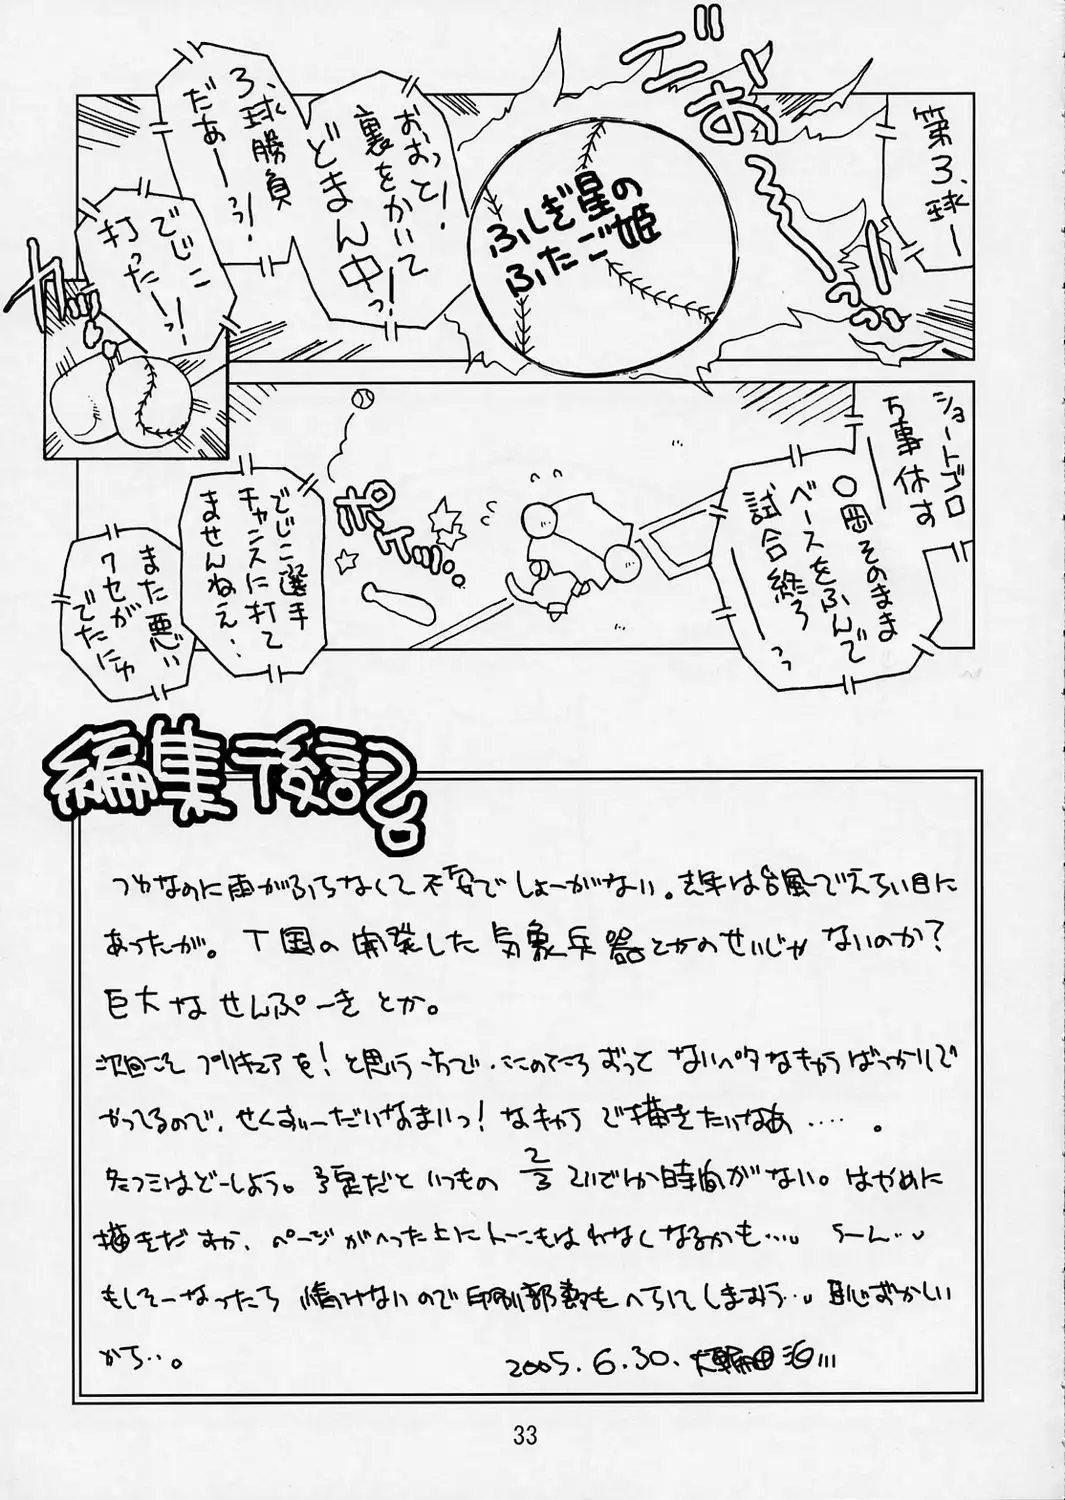 第3、球ー
ゴオォーーっっ
ふしぎ星の
ふたご姫
おおっと！
裏をかいて
どまん中っ！
3、球勝負
だあーっっ！
でじこ
打ったーっ！
カッ
ショートゴロ
万事休す
〇岡そのまま
ベースをふんで
試合終了ーっっ
ポケッ…
でじこ選手
チャンスに打て
ませんねえ…
また悪い
クセが
でたにゅ
編集後記。
つゆなのに雨がふらなくて不安でしょーがない。去年は台風でえらい目に
あったが。T国の開発した気象兵器とかのせいじゃないのか？
巨大なせんぷーきとか。
次回こそプリキュアを！と思う一方で、ここのところずっとないペタなキャラばっかりで
やってるので、せくすぃーだいなまいつ！なキャラで描きたいなあ……。
はどーしよう。予定だといつもの2/3ぐらいでか時間がない。はやめに
描きだすか、ページがへった上にトーンもはれなくなるかも…。うーん…。
もしそーなったら情けないので印刷部数もへらしてしまおう…。恥ずかしい
から…。
2005.6.30.
33